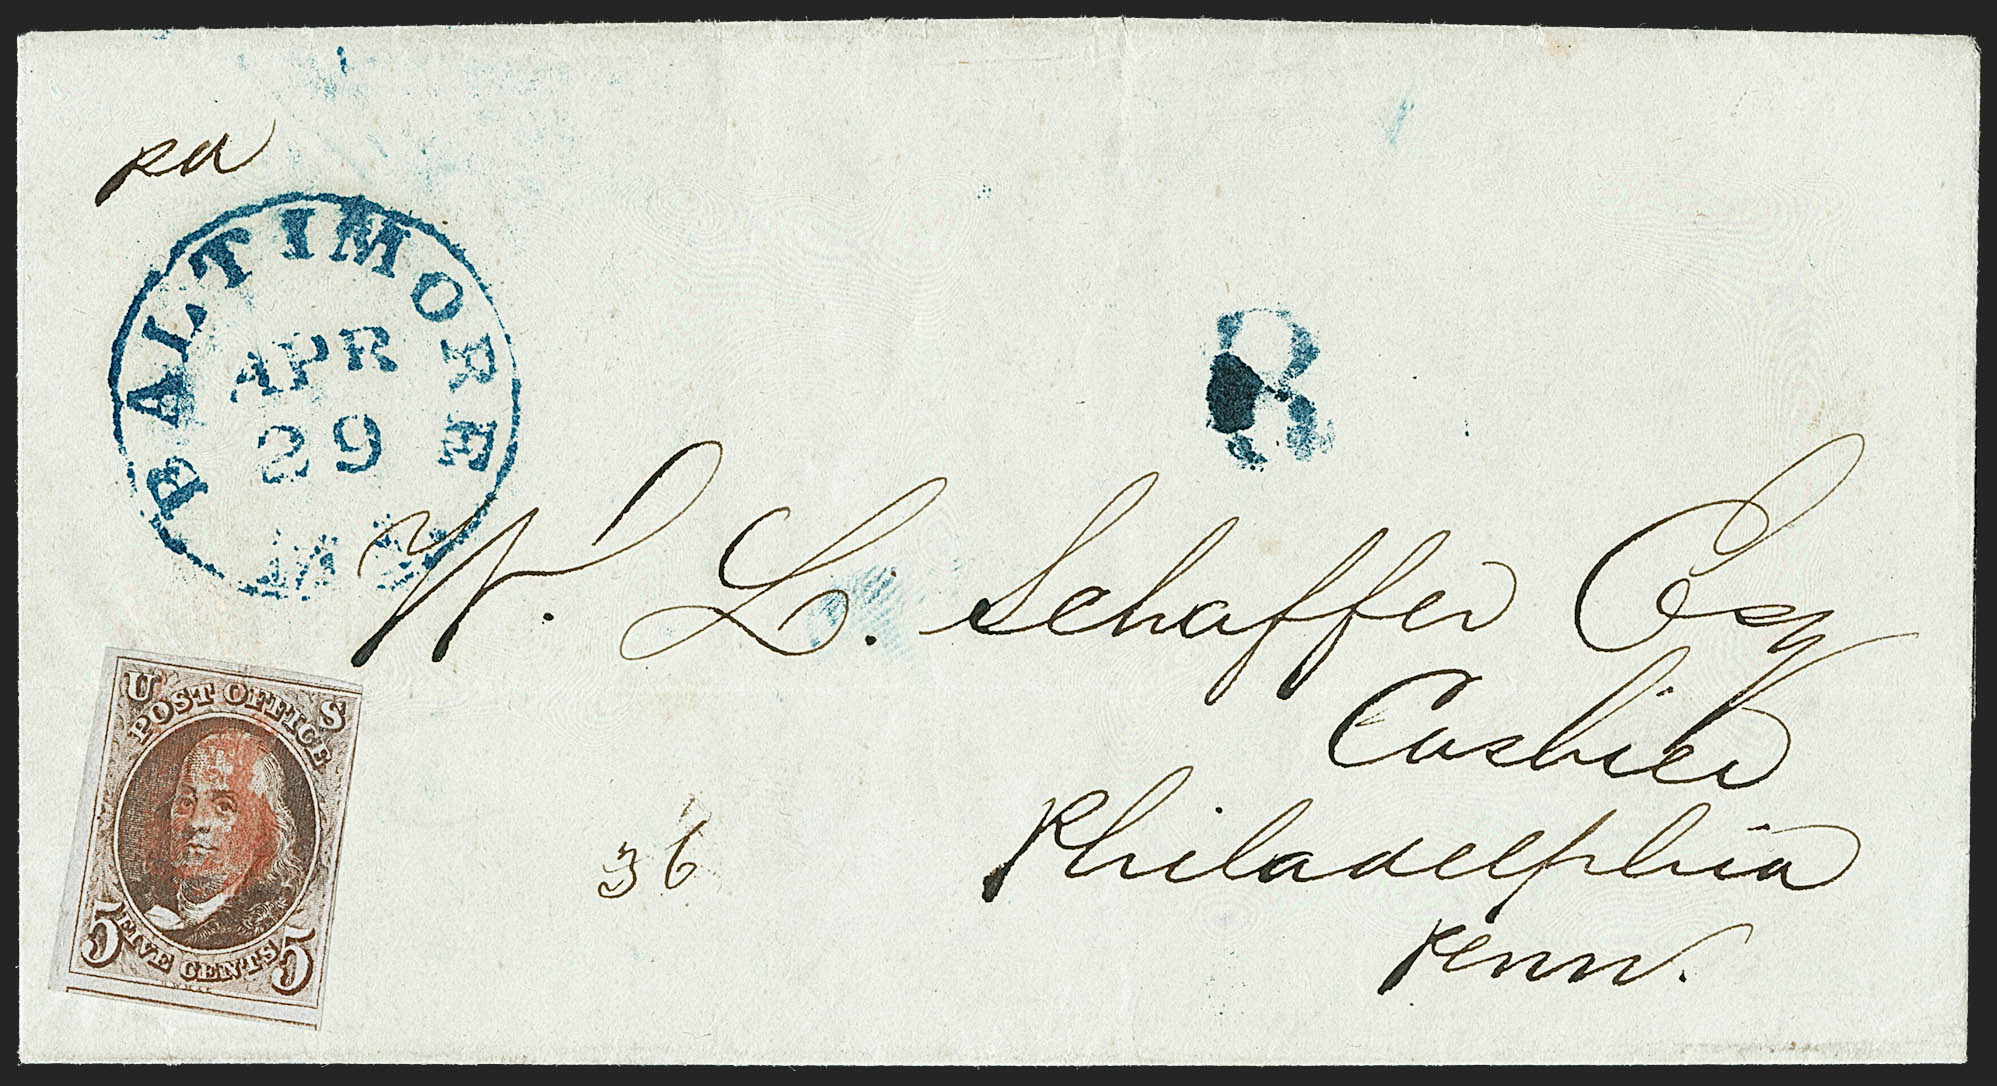 pd
BALTIMORE
APR
29
Md.
R
W. L. Schaffer Esq
Cashier
Philadelphia
Penn.
36
U S
POST OFFICE
5 FIVE CENTS 5